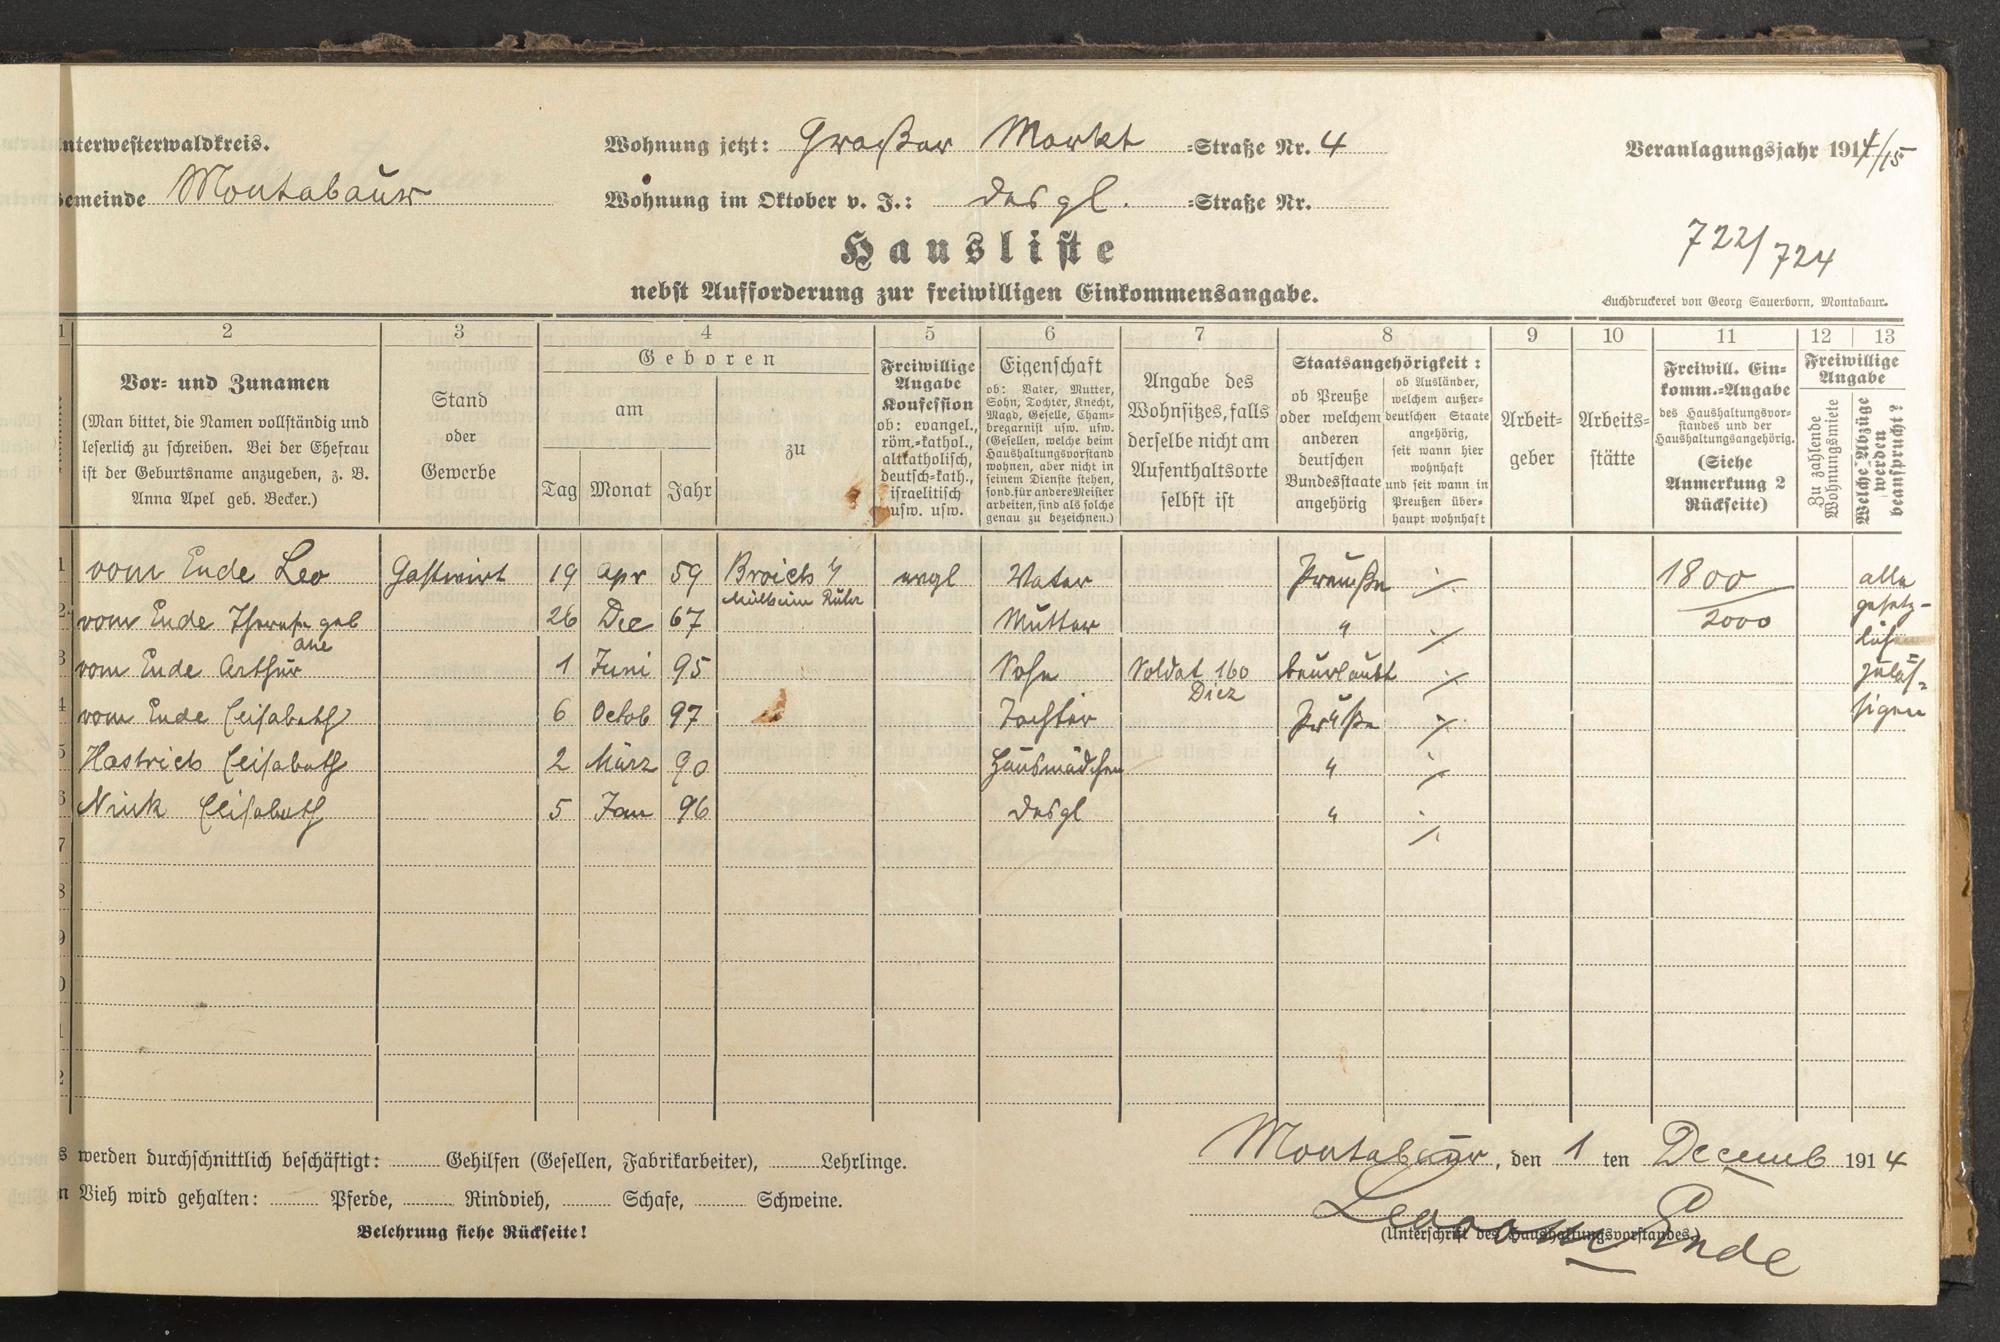 nterwesterwaldkreis.
Wohnung jetzt: Großer Markt =Straße Nr. 4
Veranlagungsjahr 1914/15
emeinde Montabaur
Wohnung im Oktober v. J.: desgl. =Straße Nr.
722/724
Hausliste
nebst Aufforderung zur freiwilligen Einkommensangabe.
Buchdruckerei von Georg Sauerborn, Montabaur.
1 2 3 4 5 6 7 8 9 10 11 12 13
Vor= und Zunamen
(Man bittet, die Namen vollständig und
leserlich zu schreiben. Bei der Ehefrau
ist der Geburtsname anzugeben, z. B.
Anna Apel geb. Becker.)
Stand
oder
Gewerbe
Geboren
am
Tag Monat Jahr
zu
Freiwillige
Angabe
Konfession
ob: evangel.,
röm.=kathol.,
altkatholisch,
deutsch=kath.,
israelitisch
usw. usw.
Eigenschaft
ob: Vater, Mutter,
Sohn, Tochter, Knecht,
Magd, Geselle, Cham=
bregarnist usw. usw.
(Gesellen, welche beim
Haushaltungsvorstand
wohnen, aber nicht in
seinem Dienste stehen,
sond. für andere Meister
arbeiten, sind als solche
genau zu bezeichnen.)
Angabe des
Wohnsitzes, falls
derselbe nicht am
Aufenthaltsorte
selbst ist
Staatsangehörigkeit:
ob Preuße
oder welchem
anderen
deutschen
Bundesstaate
angehörig
ob Ausländer,
welchem außer=
deutschen Staate
angehörig,
seit wann hier
wohnhaft
und seit wann in
Preußen über=
haupt wohnhaft
Arbeit=
geber
Arbeits=
stätte
Freiwill. Ein=
komm.=Angabe
des Haushaltungsvor=
standes und der
Haushaltungsangehörig.
(Siehe
Anmerkung 2
Rückseite)
Freiwillige
Angabe
Zu zahlende
Wohnungsmiete
Welche Abzüge
werden
beansprucht?
1 vom Ende Leo Gastwirt 19 Apr 59 Broich b/ Mülheim Ruhr evgl Vater Preuße ./. 1800 alle
2 vom Ende Therese geb 26 Dec 67 Mutter " ./. 2000 gesetz-
3 vom Ende Arthur 1 Juni 95 Sohn Soldat 160 Diez beurlaubt ./. zuläs=
4 vom Ende Elisabeth 6 Octob 97 Tochter Preuße ./. sigen
5 Hastrich Elisabeth 2 März 90 Hausmädchen " ./.
6 Nink Elisabeth 5 Jan 96 desgl " ./.
7
8
9
0
1
2
s werden durchschnittlich beschäftigt: Gehilfen (Gesellen, Fabrikarbeiter), Lehrlinge.
n Vieh wird gehalten: Pferde, Rindvieh, Schafe, Schweine.
Belehrung siehe Rückseite!
Montabaur, den 1 ten Decemb 1914
Leo vom Ende
(Unterschrift des Haushaltungsvorstandes.)